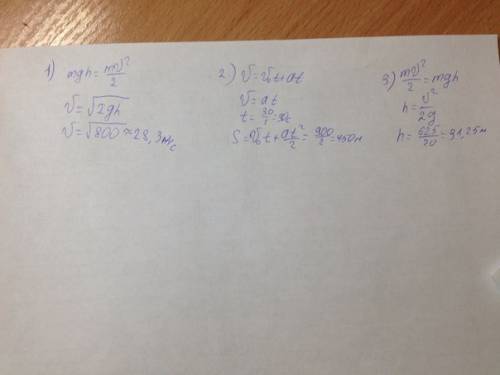 1) mgh = mv²/2
v = √2gh
v = √800 ≈ 28,3 м/с
2) v = v₀ + at
v = at
t = 30/1 = 30
S = v₀t + at²/2 = 900/2 = 450 м
3) mv²/2 = mgh
h = v²/2g
h = 625/20 = 31,25 м